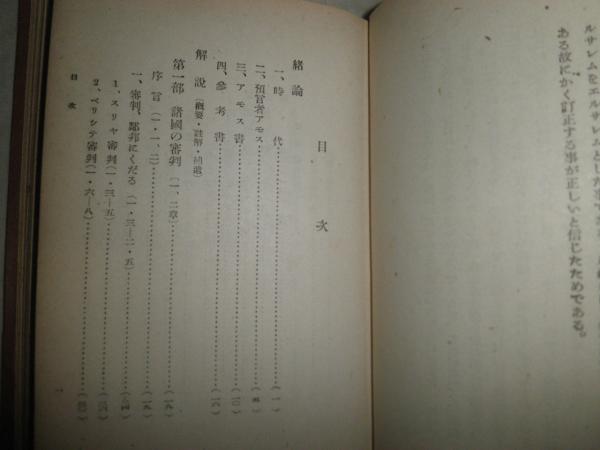 ルサレムをエルサレムとした事である
ある故にかく訂正する事が正しいと信じたためである。
目次
緒論
一、時代
二、預言者アモス
三、アモス書
四、參考書
解説（概要・註解・補遺）
第一部 諸國の審判（一、二章）
序言（一・一、二）
一、審判、鄰邦にくだる（一・三―二・五）
1、スリヤ審判（一・三―五）
2、ペリシテ審判（一・六―八）
目次